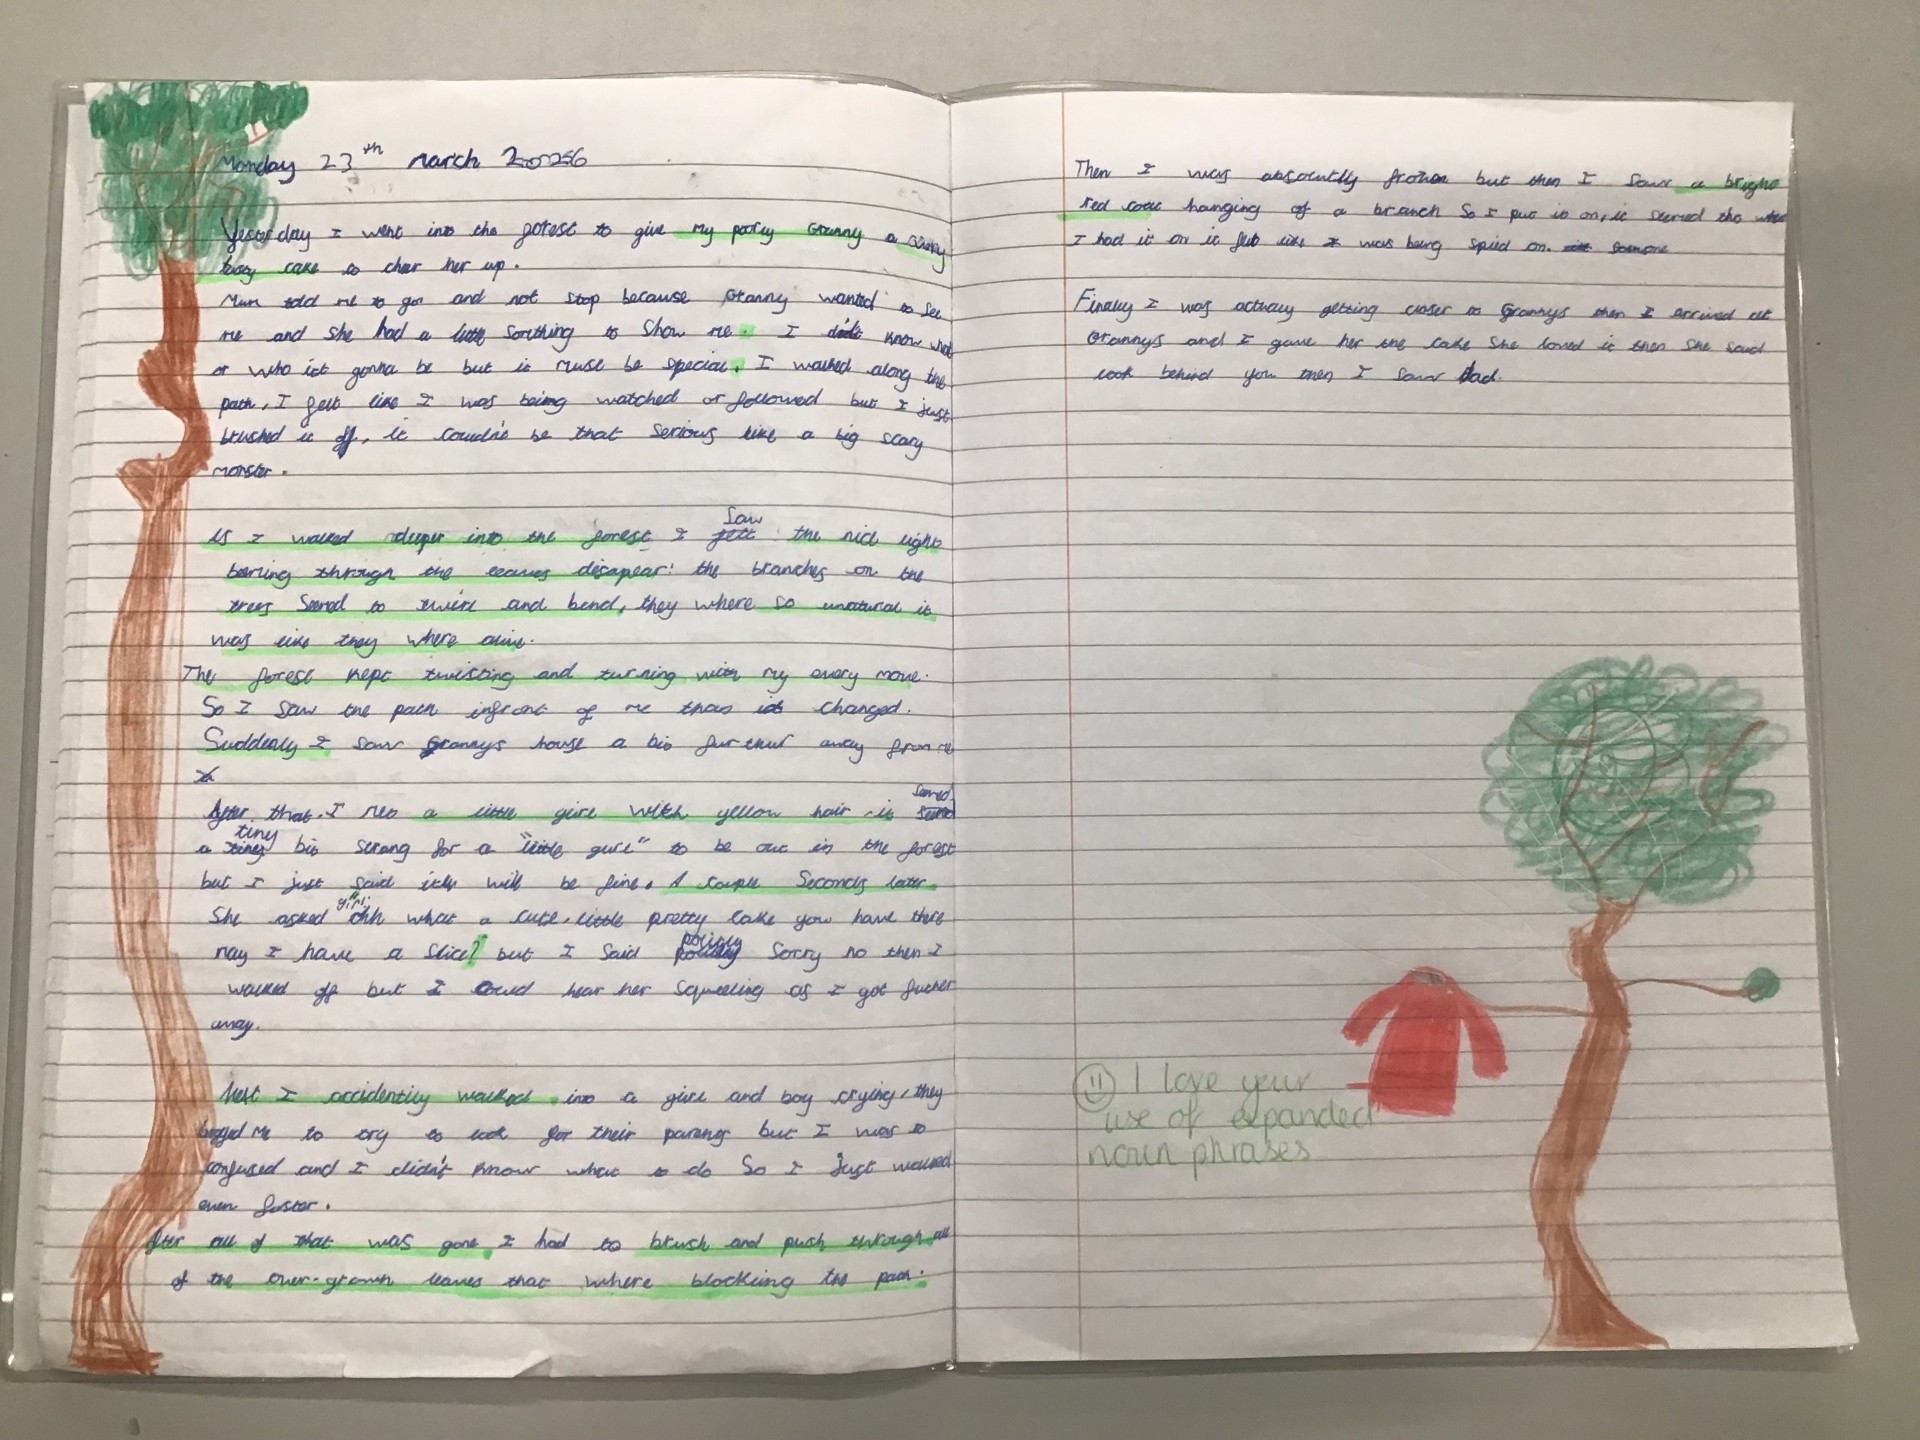 Monday 23th march
Yesterday I went into the forest to give my poorly Granny a
cake to cheer her up.
Mum told me to go and not stop because Granny wanted to see
me and she had a little somthing to show me. I didt know what
or who ist gonna be but it must be special. I walked along the
path, I felt like I was being watched or followed but I just
brushed it off, it coudn't be that serious like a big scary
monster.
As I walked deeper into the forest I saw the nice light
through the leaves disapear: the branches on the
trees seemed to twirl and bend, they where so unatural it
was like they where alive.
The forest kept twisting and turning with my every move.
So I saw the path infront of me than it changed.
Suddenly I saw Grannys house a bit furthur away from me
After that I met a little girl with yellow hair it seemed
a tiny bit strang for a "little gurl" to be out in the forest
but I just said itll will be fine. A couple seconds later
She asked "ohh what a cute little pretty cake you have there
may I have a slice? but I said politly Sorry no then I
walked off but I could hear her squeeling as I got furher
away.
Next I accidently walked into a girl and boy crying, they
begged me to try to look for their parents but I was so
confused and I didn't know what to do So I just walked
even faster.
After all of that was gone, I had to brush and push through all
of the over-grown leaves that where blocking the path.
Then I was absolutly frozen but then I saw a bright
red coat hanging of a branch So I put it on, it seemed tho when
I had it on it felt like I was being spied on.
Finally I was actualy getting closer to Grannys then I arrived at
Grannys and I gave her the cake She loved it then She said
look behind you then I saw Dad.
I love your
use of expanded
noun phrases